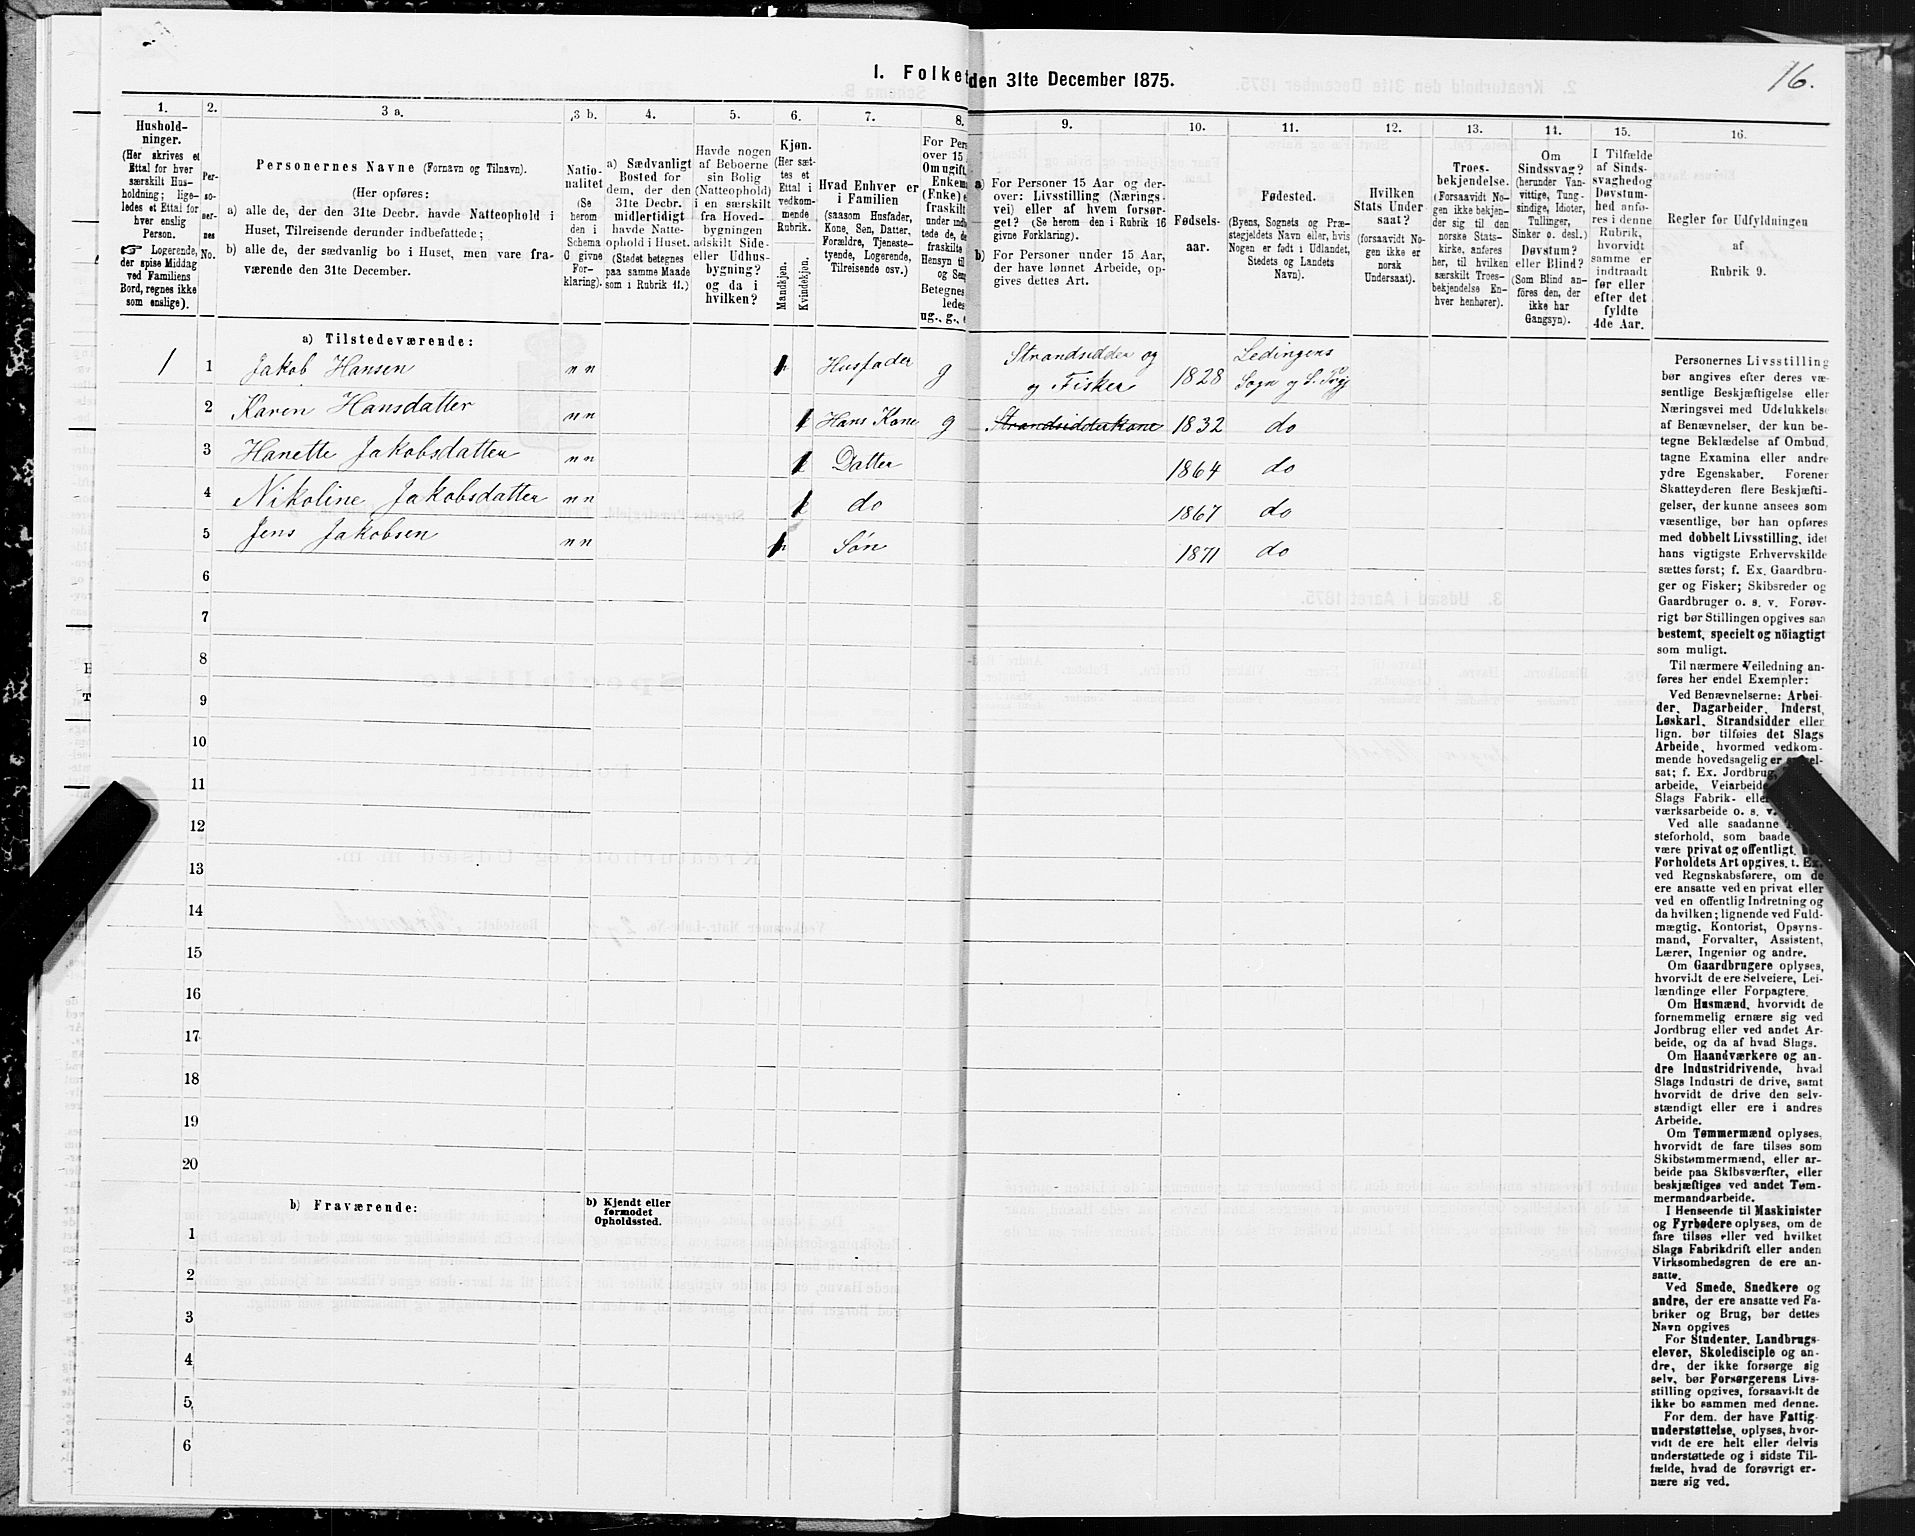 16.
I. Folket
den 31te December 1875.
1.
2.
3 a.
3 b.
4.
5.
6.
7.
8.
9.
10.
11.
12.
13.
14.
15.
16.
Hushold-
ninger.
(Her skrives et
Ettal for hver
særskilt Hus-
holdning; lige-
ledes et Ettal for
hver enslig
Person.
☞ Logerende,
der spise Middag
ved Familiens
Bord, regnes ikke
som enslige).
Per-
so-
ner-
nes
No.
Personernes Navne (Fornavn og Tilnavn).
(Her opføres:
a) alle de, der den 31te Decbr. havde Natteophold i
Huset, Tilreisende derunder indbefattede;
b) alle de, der sædvanlig bo i Huset, men vare fra-
værende den 31te December.
Natio-
nalitet
(Se
herom
den i
Schema
C givne
For-
klaring).
a) Sædvanligt
Bosted for
dem, der den
31te Decbr.
midlertidigt
havde Natte-
ophold i Huset.
(Stedet betegnes
paa samme Maade
som i Rubrik 11.)
Havde nogen
af Beboerne
sin Bolig
(Natteophold)
i en særskilt
fra Hoved-
bygningen
adskilt Side-
eller Udhus-
bygning?
og da i
hvilken?
Kjøn.
(Her sæt-
tes et
Ettal i
vedkom-
mende
Rubrik.
Mandkjøn.
Kvindekjøn.
Hvad Enhver er
i Familien
(saasom Husfader,
Kone, Søn, Datter,
Forældre, Tjeneste-
tyende, Logerende,
Tilreisende osv.)
For Pers
over 15
Om ugift,
Enkem
(Enke) e
fraskilt
under
tede de, de
fraskilte
Hensyn til
og Sen
Betegnes
ledes
ug., g., e
a) For Personer 15 Aar og der-
over: Livsstilling (Nærings-
vei) eller af hvem forsør-
get? (Se herom den i Rubrik 16
givne Forklaring).
b) For Personer under 15 Aar,
der have lønnet Arbeide, op-
gives dettes Art.
Fødsels-
aar.
Fødested.
(Byens, Sognets og Præ-
stegjeldets Navn eller, hvis
Nogen er født i Udlandet,
Stedets og Landets
Navn).
Hvilken
Stats Under
saat?
(forsaavidt No-
gen ikke er
norsk
Undersaat).
Troes-
bekjendelse.
(Forsaavidt No-
gen ikke bekjen-
der sig til den
norske Stats-
kirke, anføres
her, til hvilken
særskilt Troes-
bekjendelse En-
hver henhører).
Om
Sindssvag?
(herunder Van-
vittige, Tung-
sindige, Idioter,
Tullinger,
Sinker o. desl.)
Døvstum?
eller Blind?
(Som Blind an-
føres den, der
ikke har
Gangsyn).
I Tilfælde
af Sinds-
svaghed og
Døvstum-
hed anfø-
res i denne
Rubrik,
hvorvidt
samme er
indtraadt
før eller
efter det
fyldte
4de Aar.
Regler for Udfyldningen
af
Rubrik 9.
a) Tilstedeværende:
1 1 Jakob Hansen n n 1 Husfader g Strandsidder og
og Fisker 1828 Ledingens
Sogn
2 Karen Hansdatter n n 1 Hans Kone g Strandsidderkone 1832 do
3 Hanette Jakobsdatter n n 1 Datter 1864 do
4 Nikoline Jakobsdatter n n 1 do 1867 do
5 Jens Jakobsen n n 1 Søn 1871 do
6
7
8
9
10
11
12
13
14
15
16
17
18
19
20
b) Fraværende:
b) Kjendt eller
formodet
Opholdssted.
1
2
3
4
5
6
Personernes Livsstilling
bør angives efter deres væ-
sentlige Beskjæftigelse eller
Næringsvei med Udelukkelse
af Benævnelser, der kun be-
tegne Beklædelse af Ombud,
tagne Examina eller andre
ydre Egenskaber. Forener
Skatteyderen flere Beskjæfti-
gelser, der kunne ansees som
væsentlige, bør han opføres
med dobbelt Livsstilling, idet
hans vigtigste Erhvervskilde
sættes først; f. Ex. Gaardbru-
ger og Fisker; Skibsreder og
Gaardbruger o. s. v. Forøv-
rigt bør Stillingen opgives saa
bestemt, specielt og nöiagtigt
som muligt.
Til nærmere Veiledning an-
føres her endel Exempler:
Ved Benævnelserne: Arbei-
der, Dagarbeider, Inderst,
Løskarl, Strandsidder eller
lign. bør tilføies det Slags
Arbeide, hvormed vedkom-
mende hovedsagelig er
sat; f. Ex. Jordbrug,
arbeide, Veiarbeide
Slags Fabrik- eller
værksarbeide o. s. v.
Ved alle saadanne
steforhold, som baade
være privat og offentligt,
Forholdets Art opgives, t. Ex.
ved Regnskabsførere, om de
ere ansatte ved en privat eller
ved en offentlig Indretning og
da hvilken; lignende ved Fuld-
mægtig, Kontorist, Opsyns-
mand, Forvalter, Assistent,
Lærer, Ingeniør og andre.
Om Gaardbrugere oplyses,
hvorvidt de ere Selveiere, Lei-
lændinge eller Forpagtere.
Om Husmænd, hvorvidt de
fornemmelig ernære sig ved
Jordbrug eller ved andet Ar-
beide, og da af hvad Slags.
Om Haandværkere og an-
dre Industridrivende, hvad
Slags Industri de drive, samt
hvorvidt de drive den selv-
stændigt eller ere i andres
Arbeide.
Om Tømmermænd oplyses,
hvorvidt de fare tilsøs som
Skibstømmermænd, eller ar-
beide paa Skibsværfter, eller
beskjæftiges ved andet Tøm-
mermandsarbeide.
I Henseende til Maskinister
og Fyrbødere oplyses, om de
fare tilsøs eller ved hvilket
Slags Fabrikdrift eller anden
Virksomhedsgren de ere an-
satte.
Ved Smede, Snedkere og
andre, der ere ansatte ved Fa-
briker og Brug, bør dettes
Navn opgives
For Studenter, Landbrugs-
elever, Skoledisciple og an-
dre, der ikke forsørge sig
selv, bør Forsørgerens Livs-
stilling opgives, forsaavidt de
ikke bo sammen med denne.
For dem, der have Fattig-
understøttelse, oplyses, hvor-
vidt de ere helt eller delvis
understøttede og i sidste Til-
fælde, hvad de forøvrigt er-
nære sig ved.